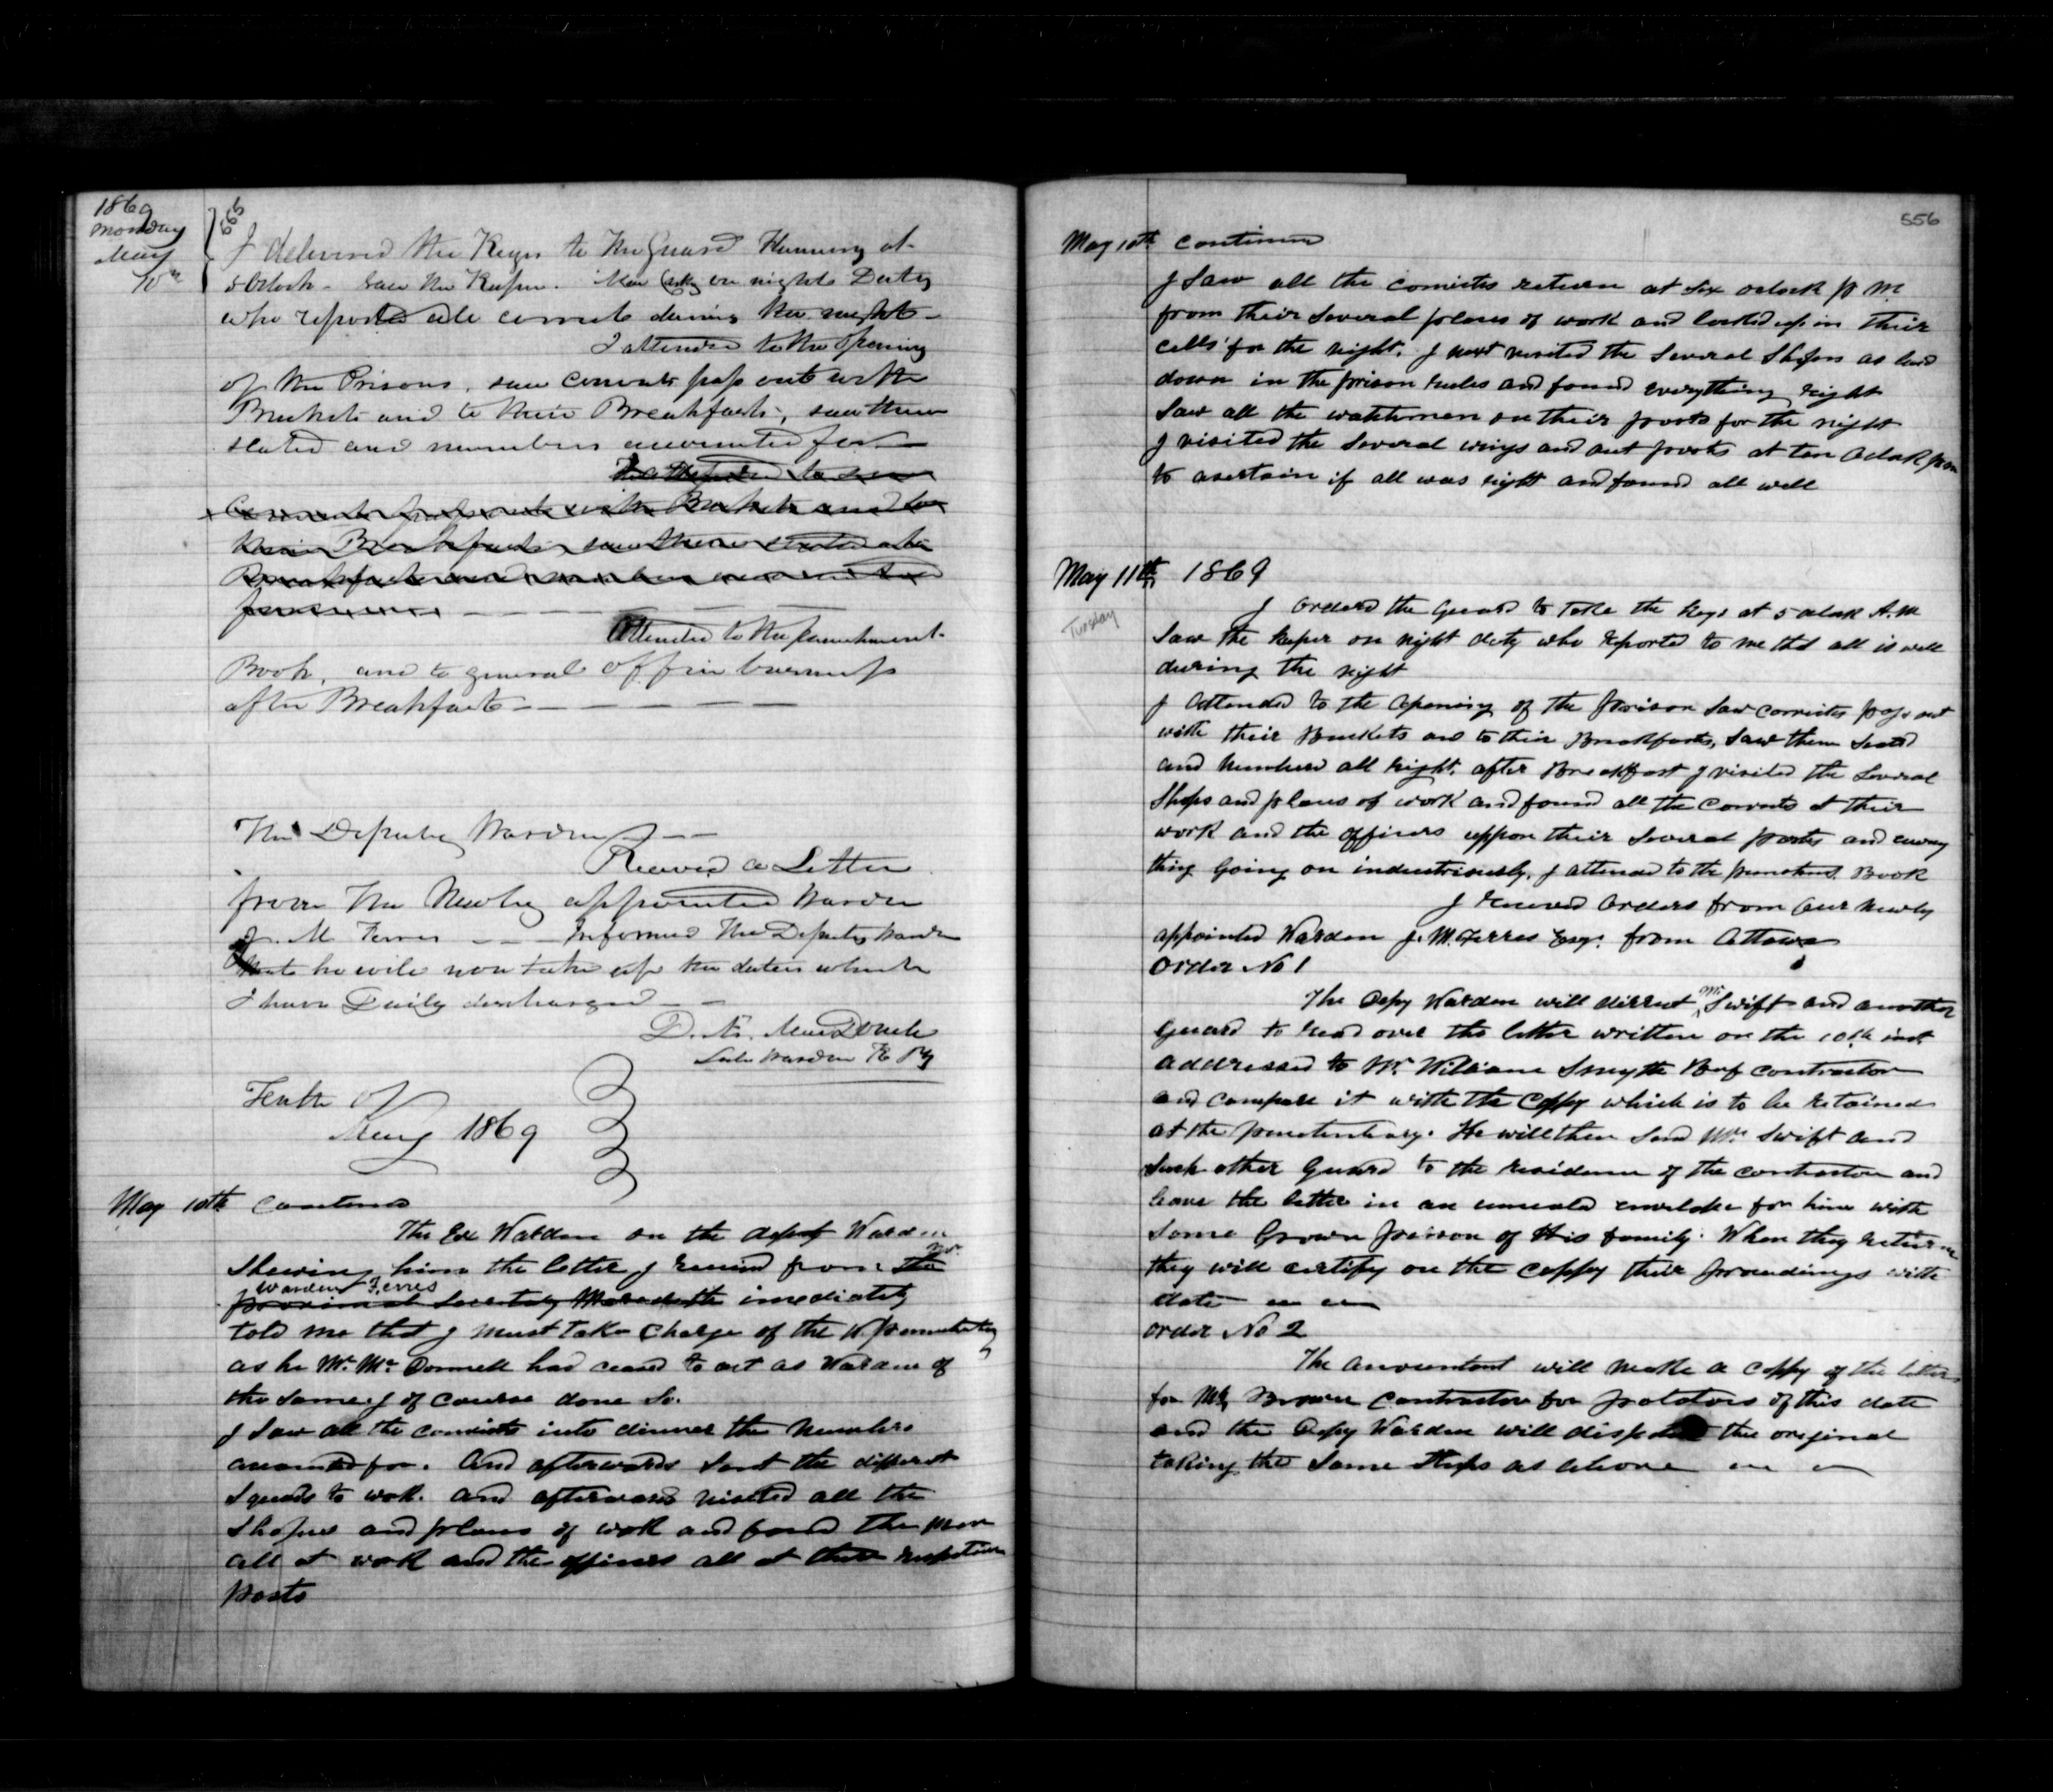 1869
Monday
May
10th
555
I delivered the Keys to the Guard Flannery at
5 Oclock - saw the Keeper. Mac on night Duty
who reported all correct during the night -
I attended to the opening
of the Prison, saw convicts pass out with
Buckets and to their Breakfasts, saw them
seated and numbers accounted for -
I attended to see
Convicts pass out with Buckets and to
their Breakfasts, saw them seated at
Breakfast and numbers accounted
for
Attended to the punishment
Book, and to general office business
after Breakfast - - - - - -
The Deputy Warden - -
Received a Letter
from the Newly appointed Warden
J. M. Ferres - - - Informed The Deputy Warden
that he will now take up the duties which
I have Daily discharged - -
D. Æ. MacDonell
Late Warden K Py
Tenth of
May 1869
May 10th Continued
The Ex Warden on the deputy Warden
shewing him the letter I received from the Mr.
Warden Ferres
provincial Secretary imediately
told me that I must take charge of the P. penitentiary
as he Mr. McDonnell had ceased to act as Warden of
the same. I of course done so.
I saw all the convicts into dinner the numbers
accounted for. And afterwards sent the different
squads to work. and afterwards visited all the
Shopes and places of work and found the men
all at work and the officers all at their respective
posts
556
May 10th Continued
I saw all the convicts return at six oclock p M.
from their several places of work and locked up in their
cells for the night. I next visited the several Shops as laid
down in the prison rules and found everything right
Saw all the watchmen on their posts for the night
I visited the several wings and out posts at ten Oclock pm
to asertain if all was right and found all well
May 11th 1869
Tuesday
I orderd the Guard to take the keys at 5 oclock A.M
Saw the keeper on night duty who reported to me that all is well
during the night
I attended to the opening of the Prison saw convicts pass out
with their Buckets and to their Breakfasts, saw them seated
and numbered all right. after Breakfast I visited the several
Shops and places of work and found all the convicts at their
work and the officers uppon their several posts and every
thing going on industriously. I attended to the punishment Book
I received orders from our newly
appointed Warden J. M. Ferres Esqr. from Ottawa
Order No 1
The Depy Warden will dirrect Mr. Swift and another
Guard to read over the letter written on the 10th inst
addressed to Mr. William Smyth Beef contractor
and compare it with the Coppy which is to be retained
at the penitentiary. He will then send Mr. Swift and
such other Guard to the residence of the contractor and
leave the letter in an unseald envelope for him with
some Grown person of His family. When they return
they will certify on the coppy their proceedings with
date
order No 2
The accountant will make a coppy of the letter
for Mr. Brown Contractor for potatoes of this date
and the Depy Warden will dispatch the original
taking the same steps as above